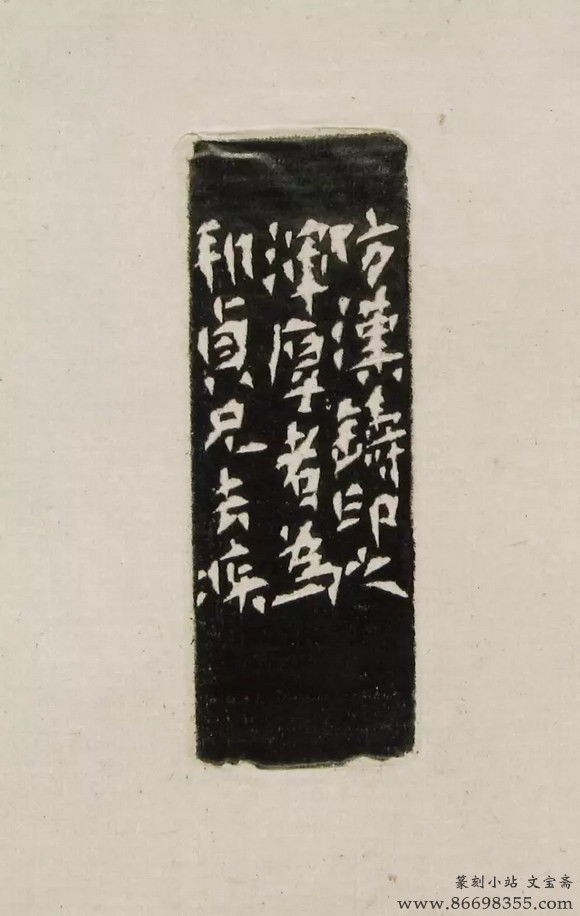 方漢鑄印之
渾厚者為
利貞兄去疾
篆刻小站 文宝斋
www.86698355.com